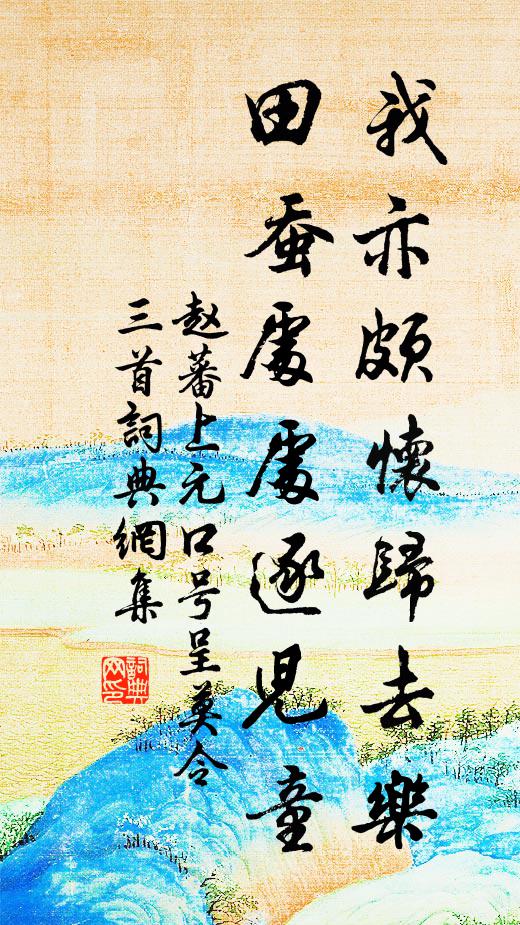 我亦頗懷歸去樂
田蚕處處逐児童
赵蕃上元口号呈莫令
三首詞典網集
詞典
网印